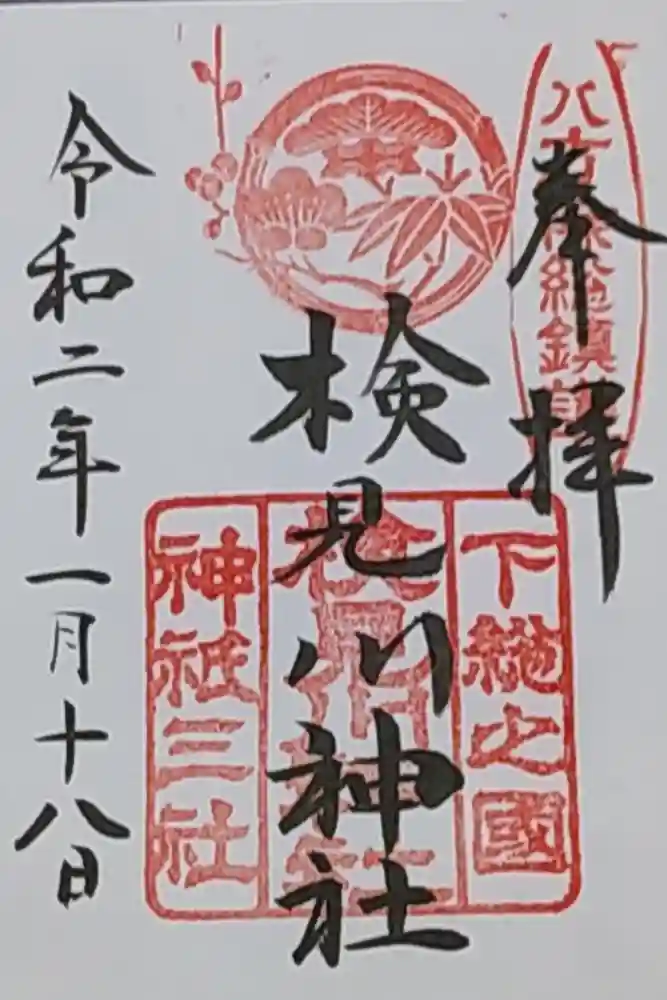 奉拝
八方除総鎮護
下総之國
検見川神社
検見川神社
神祇三社
令和二年一月十八日